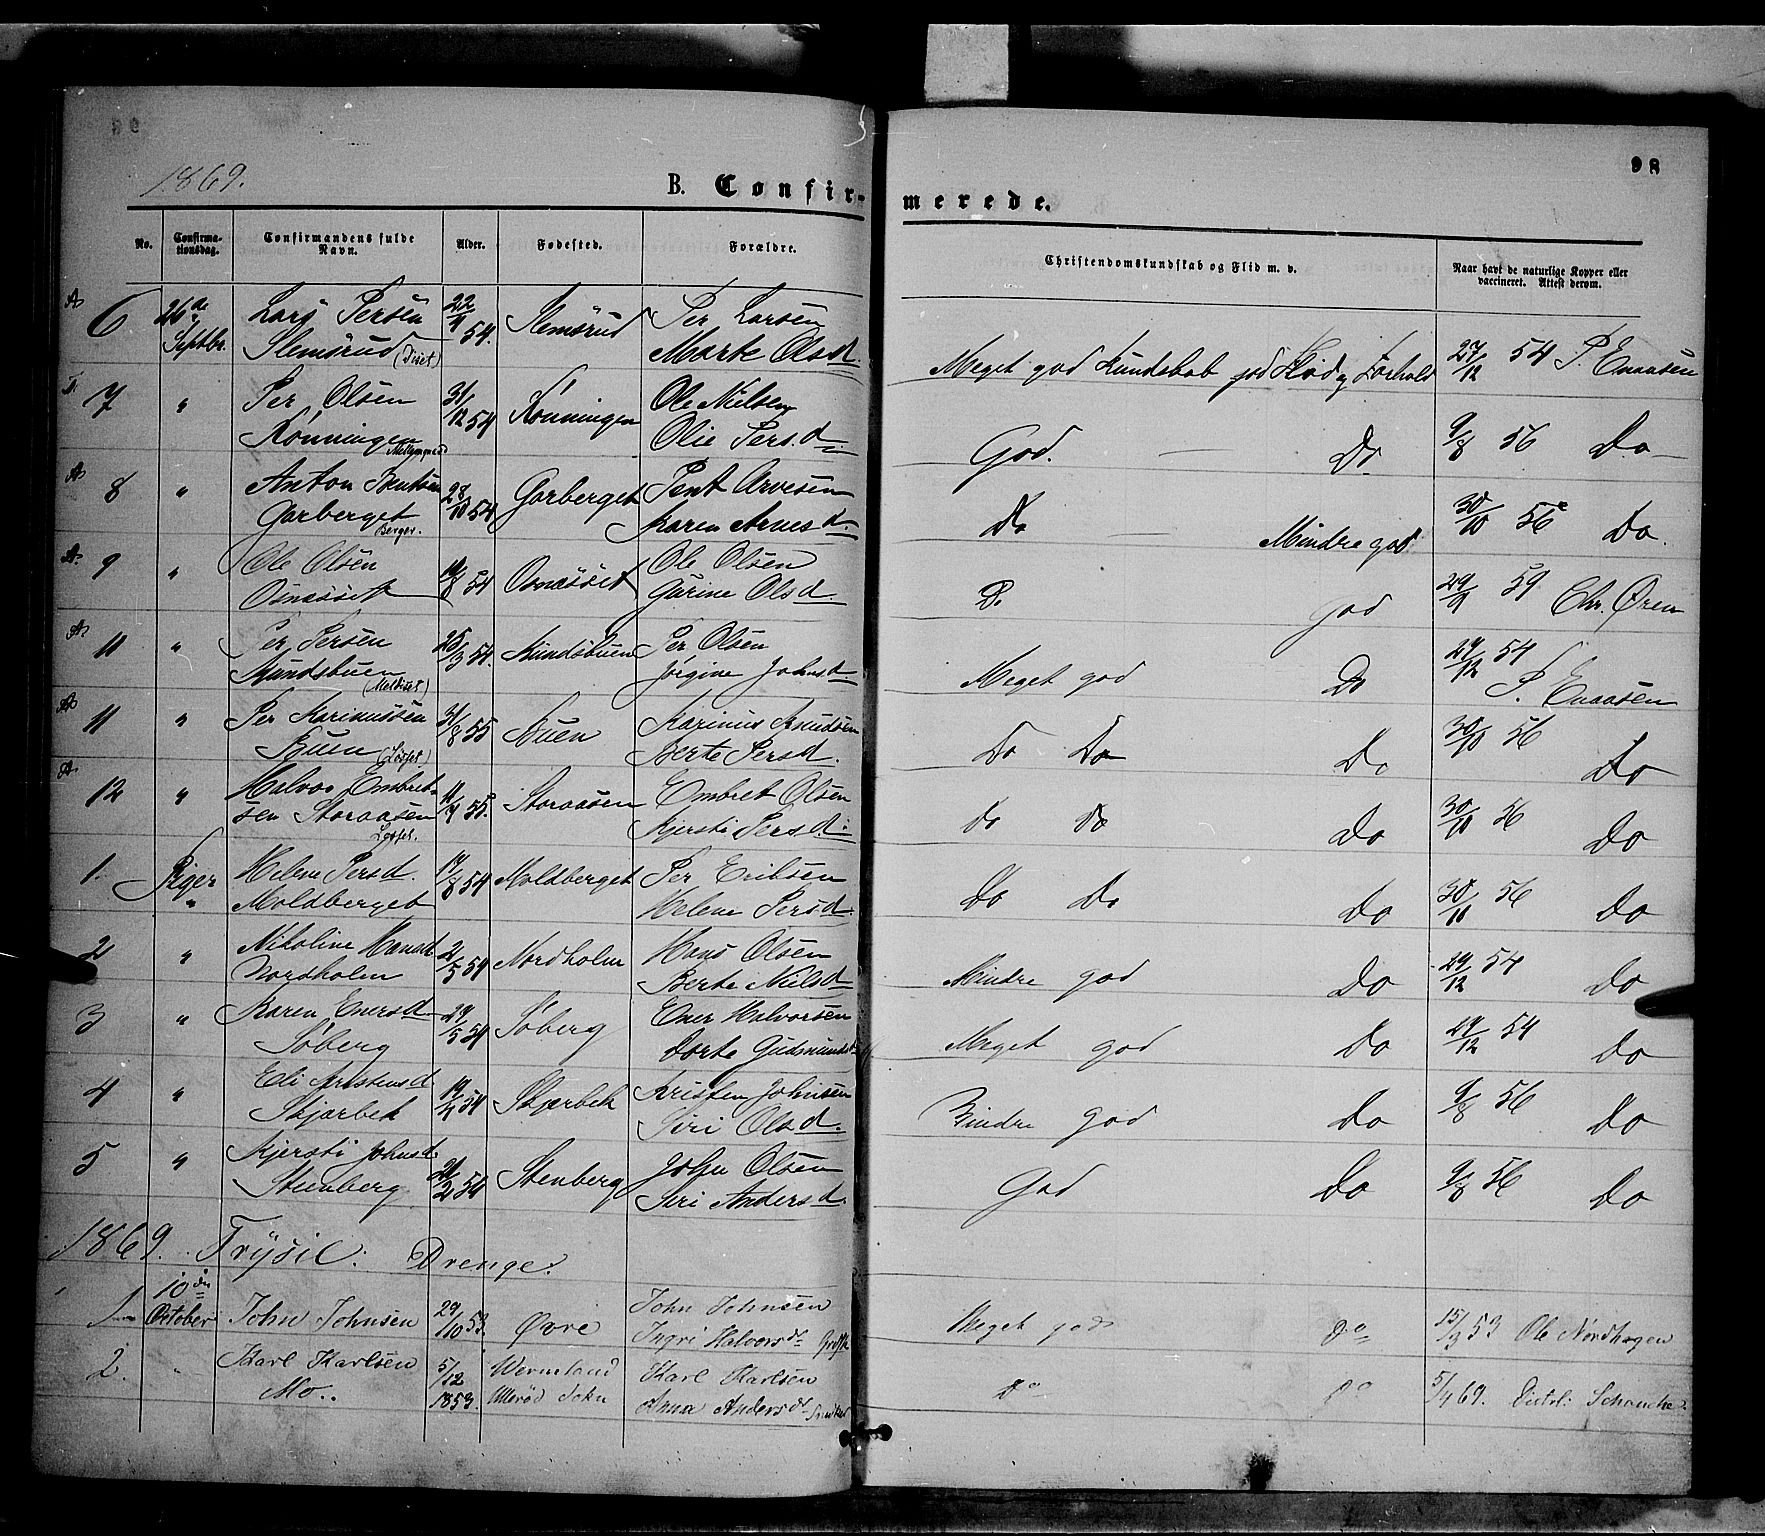 98
1869.
B. Confir-
merede.
No.
Confirma-
tionsdag.
Confirmandens fulde
Navn.
Alder.
Fødested.
Forældre.
Christendomskundskab og Flid m. v.
Naar havt de naturlige Kopper eller
vaccineret. Attest derom.
A. 6 26de Septbr. Lars Persen 22/4 54. Slemsrud Per Larsen
Slemsrud Marte Olsd. Meget god Kundskab god Flid og Forhold 27/12 54 P. Enaasen
7 " Per Olsen 31/12 54 Rønningen Ole Nielsen
Rønningen Olie Persd. God. — Do 9/8 56 Do
A. 8 " Anton Bentsen 28/10 54 Garberget Bent Arvesen
Garberget Berger. Karen Arnesd. Do — Mindre god 30/10 56 Do.
A. 9 " Ole Olsen Osnæsset Ole Olsen
Osnæsset Gurine Olsd. Do god 29/9 59 Chr. Øren
A. 11 " Per Persen 25/3 54. Kundsbuen Per Olsen
Kundsbuen Jørgine Johnsd. Meget god Do 29/12 54 P. Enaasen
A. 11 " Per Karinussen 31/8 55 Buen Karinus Knudsen
Buen Berte Persd. Do Do Do 30/10 56 Do
A. 12 " Halvor Embret- 11/4 55. Storaasen Embret Olsen
sen Storaasen Kjersti Persd. Do Do Do 30/10 56 Do
1. Piger " Helene Persd. 17/8 54 Moldberget Per Eriksen
Moldberget Helene Persd. Do Do Do 30/10 56 Do
2 " Nikoline Hansd. 2/5 54 Nordholm Hans Olsen
Nordholm Berte Nielsd. Mindre god Do 29/12 54 Do
3 " Karen Enersd. 29/5 54 Søberg Ener Halvorsen
Søberg Dorte Gudmundsd. Meget god Do 29/12 54 Do
4 " Eli Kristensd. 19/4 54 Skjærbek Kristen Johnsen
Skjærbek Siri Olsd. Mindre god Do 9/8 56 Do
5 " Kjersti Johnsd. Stenberg John Olsen
Stenberg Siri Andersd. God Do 9/8 56 Do
1869. Trysil. Drenge.
1 10den October John Johnsen 29/10 53. Øvre John Johnsen
Ingri Halvorsdr. Meget god Do 15/3 53 Ole Nordhagen
2. " Karl Karlsen 5/12 1853. Wermeland Karl Karlsen
Mo. Sokn Anna Andersdr. Do Do 5/4 69. Schancke.